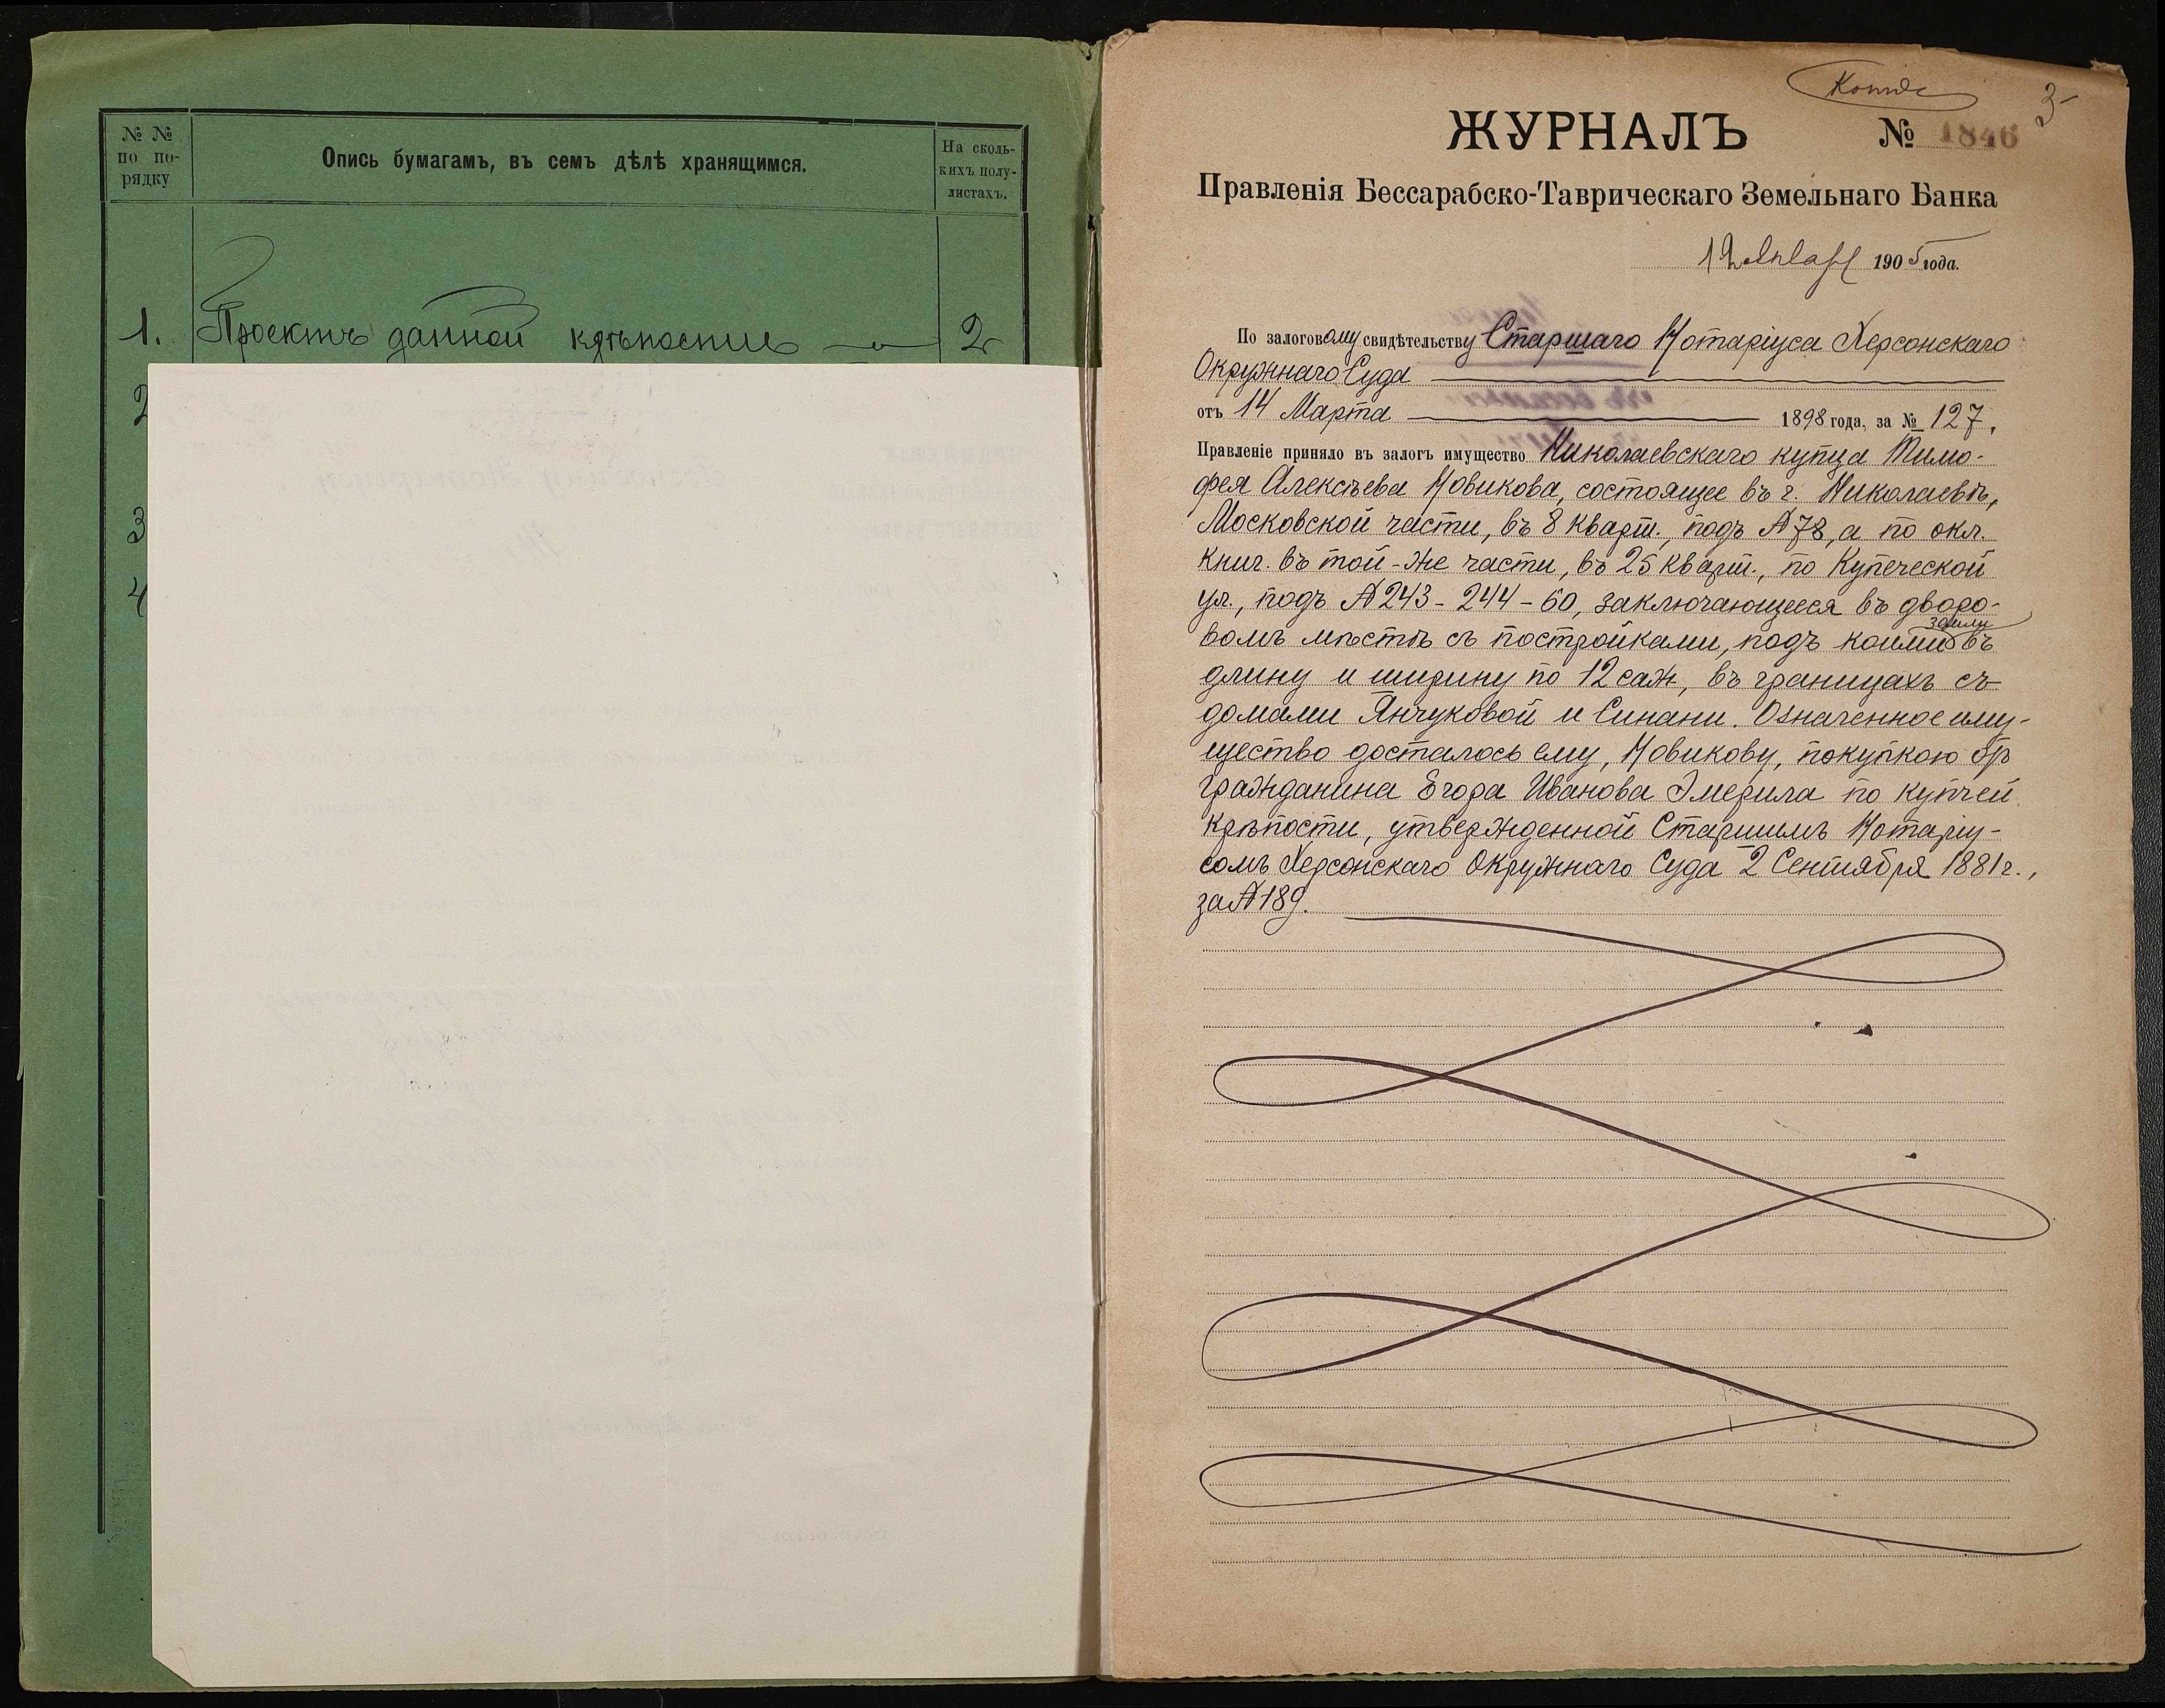 № №
по по-
рядку
Опись бумагамъ, въ семъ дѣлѣ хранящимся.
На сколь-
кихъ полу-
листахъ.
1. Проектъ данной крѣпости 2
2
3
4
Копія
3
ЖУРНАЛЪ № 1846
Правленія Бессарабско-Таврическаго Земельнаго Банка
12 Января 1905 года.
По залоговому свидѣтельству Старшаго Нотаріуса Херсонскаго
Окружнаго Суда
отъ 14 Марта 1898 года, за № 127,
Правленіе приняло въ залогъ имущество Николаевскаго купца Тимо-
фея Алексѣева Новикова, состоящее въ г. Николаевѣ,
Московской части, въ 8 кварт., подъ № 78, а по окл.
книг. въ той-же части, въ 25 кварт., по Купеческой
ул., подъ № 243-244-60, заключающееся въ дворо-
вомъ мѣстѣ съ постройками, подъ коими земли въ
длину и ширину по 12 саж, въ границахъ съ
домами Янчуковой и Синани. Означенное иму-
щество досталось ему, Новикову, покупкою отъ
гражданина Егора Иванова Эмерила по купчей
крѣпости, утвержденной Старшимъ Нотаріу-
сомъ Херсонскаго Окружнаго Суда 2 Сентября 1881 г.,
за № 189.